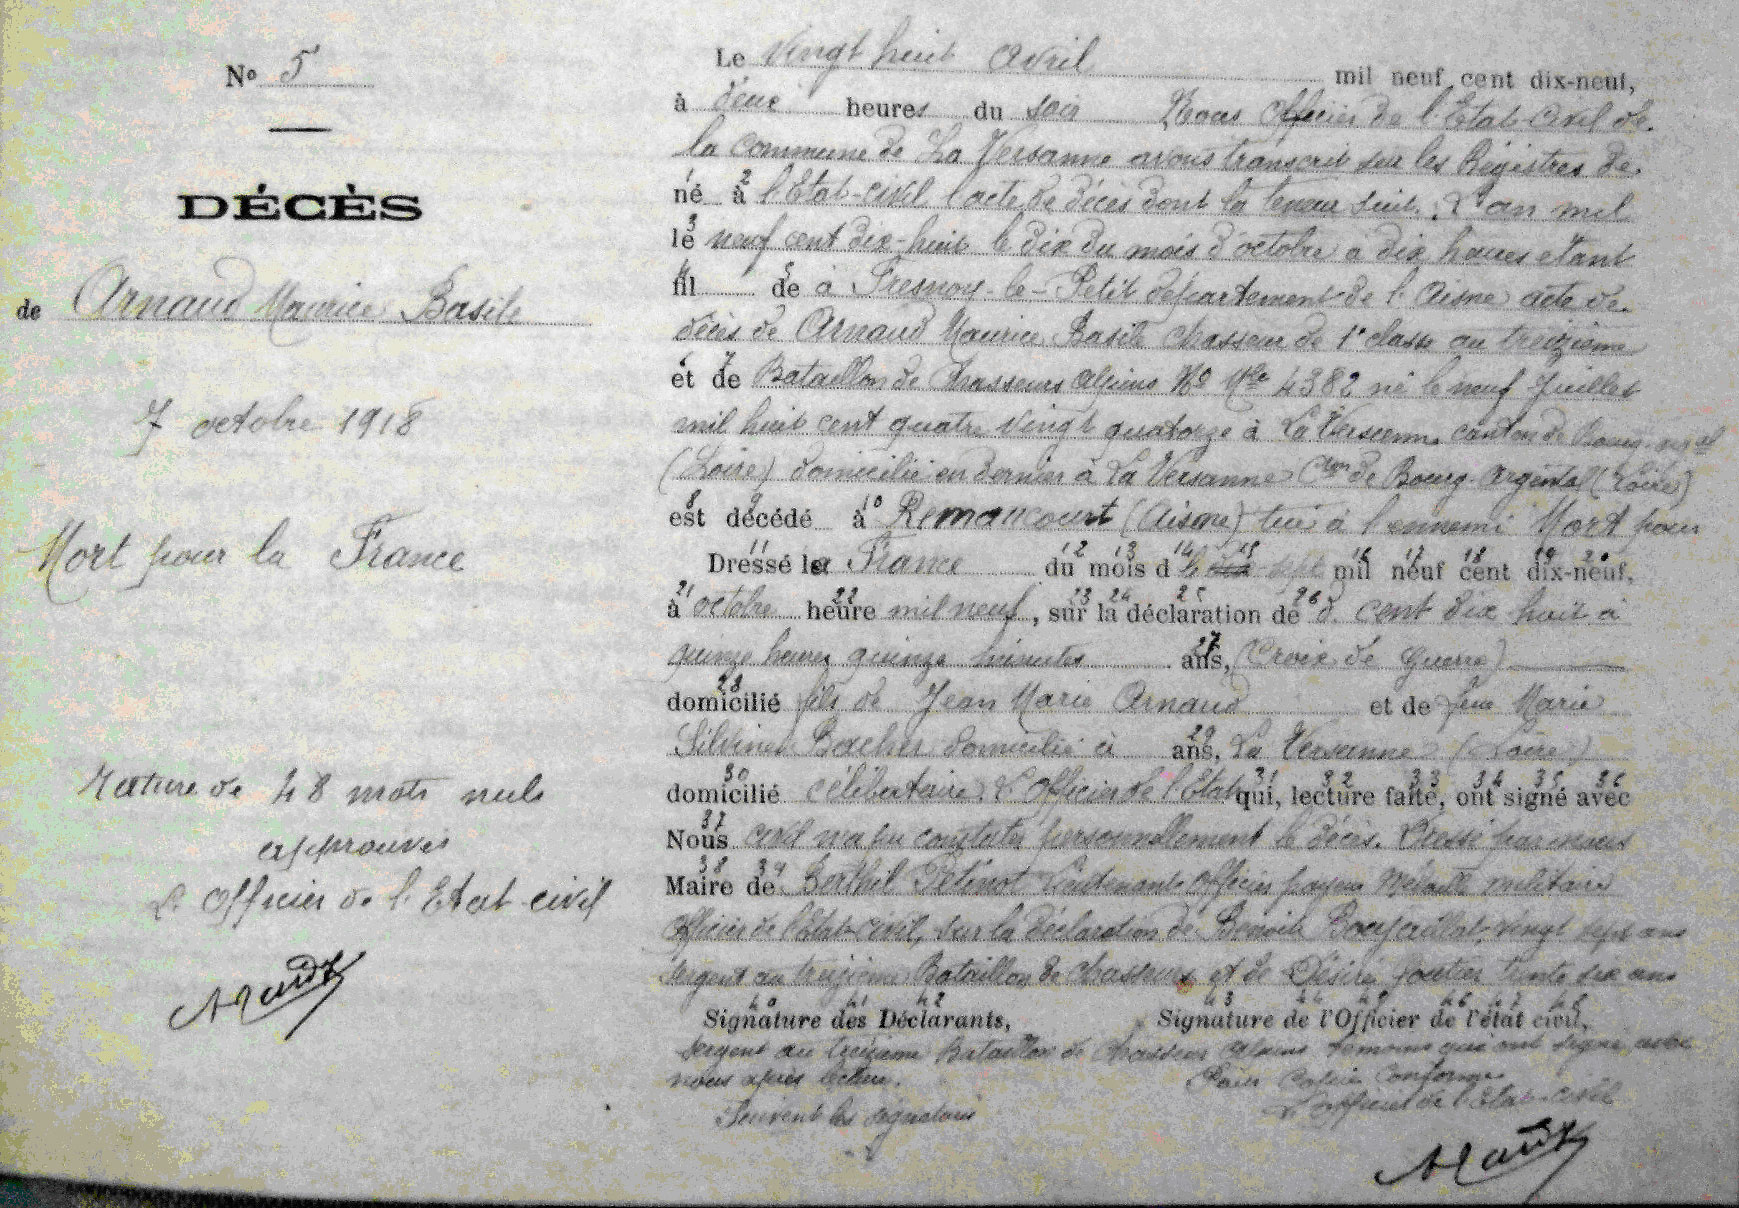 N° 5
DÉCÈS
de Arnaud Maurice Basile
7 octobre 1918
Mort pour la France
Rature de 48 mots nuls
approuvés
L'Officier de l'Etat-civil
Le vingt huit avril mil neuf cent dix-neuf,
à deux heures du soir Nous Officier de l'Etat-civil de
la commune de La Versanne avons transcrit sur les Régistres de
né 1 à 2 l'Etat-civil l'acte de décès dont la teneur suit. L'an mil
le 3 neuf cent dix-huit le dix du mois d'octobre à dix heures étant
fil 4 de 5 à Fresnoy-le-Petit département de l'Aisne acte de
décès de Arnaud Maurice Basile chasseur de 1e classe au treizième
et 6 de 7 Bataillon de Chasseurs alpins No Mle 4382 né le neuf juillet
mil huit cent quatre vingt quatorze à La Versanne canton de
(Loire) domicilié en dernier à La Versanne Cton de Bourg-Argental (Loire)
est 8 décédé 9 à 10 Remaucourt (Aisne) tué à l'ennemi Mort pour
Dressé 11 la France du 12 mois 13 d 14 le 15 sept mil 16 neuf 17 cent 18 dix-neuf, 19 20
à 21 octobre heure 22 mil neuf, sur 23 la 24 déclaration 25 de 26 d. cent dix huit à
quinze heures quinze minutes ans, 27 (Croix de Guerre)
domicilié 28 fils de Jean Marie Arnaud et de feue Marie
domicilié à ans, 29 La Versanne (Loire)
domicilié 30 célibataire. L'Officier de l'Etat qui, 31 lecture 32 faite, 33 ont 34 signé 35 avec 36
Nous 37 civil n'a pu constater personnellement le décès. Dressé par nous
Maire 38 de 39 Berthil Petinot Lieutenant officier payeur Médaille militaire
officier de l'Etat-civil, sur la déclaration de Benoit vingt sept ans
sergent au treizième Bataillon de chasseurs et de Désiré trente six ans
Signature 40 des 41 Déclarants, 42 Signature 43 de 44 l'Officier 45 de 46 l'état 47 civil, 48
sergent au treizième Bataillon de Chasseurs alpins témoins qui ont signé avec
nous après lecture. Pour Copie Conforme
Suivent les signatures L'officier de l'Etat-civil